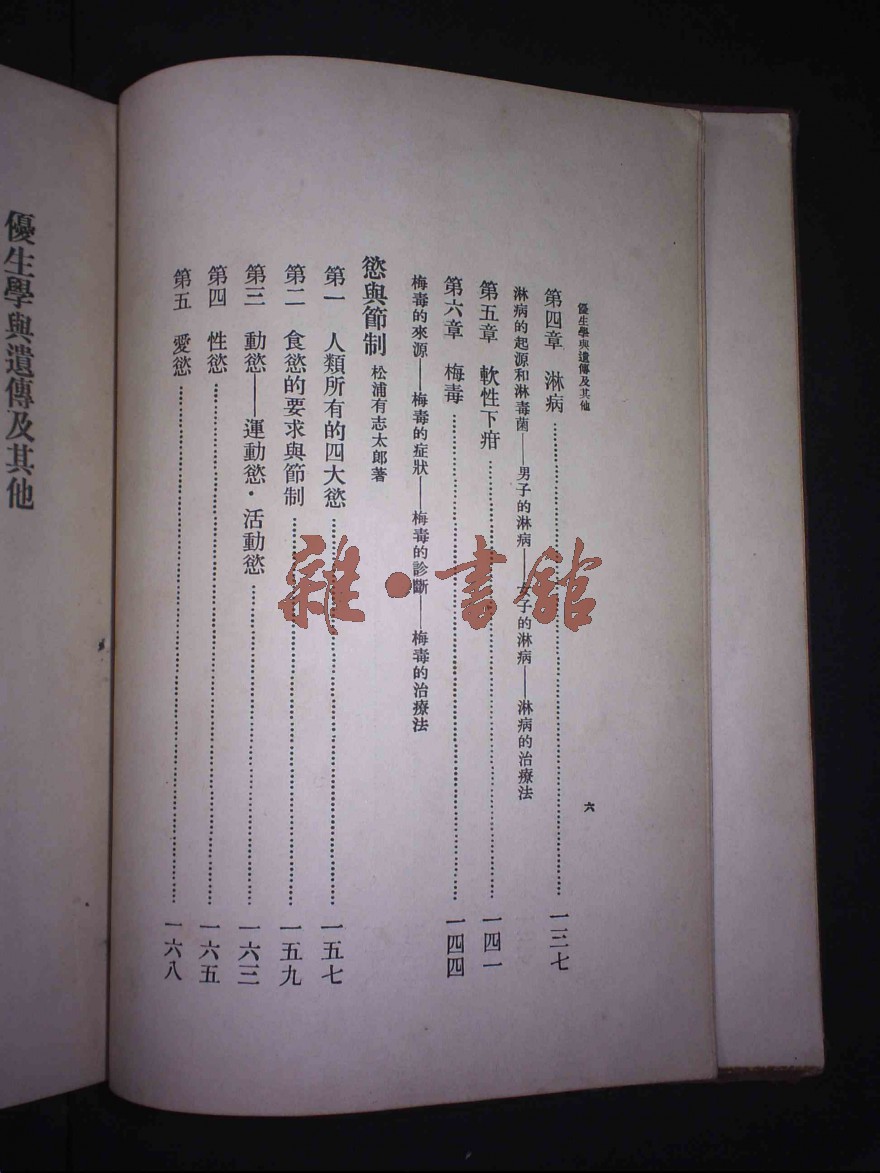 優生學與遺傳及其他
六
第四章 淋病……一三七
淋病的起源和淋毒菌——男子的淋病——女子的淋病——淋病的治療法
第五章 軟性下疳……一四一
第六章 梅毒……一四四
梅毒的來源——梅毒的症狀——梅毒的診斷——梅毒的治療法
慾與節制 松浦有志太郎著
第一 人類所有的四大慾……一五七
第二 食慾的要求與節制……一五九
第三 動慾——運動慾·活動慾……一六三
第四 性慾……一六五
第五 愛慾……一六八
優生學與遺傳及其他
雜·書館